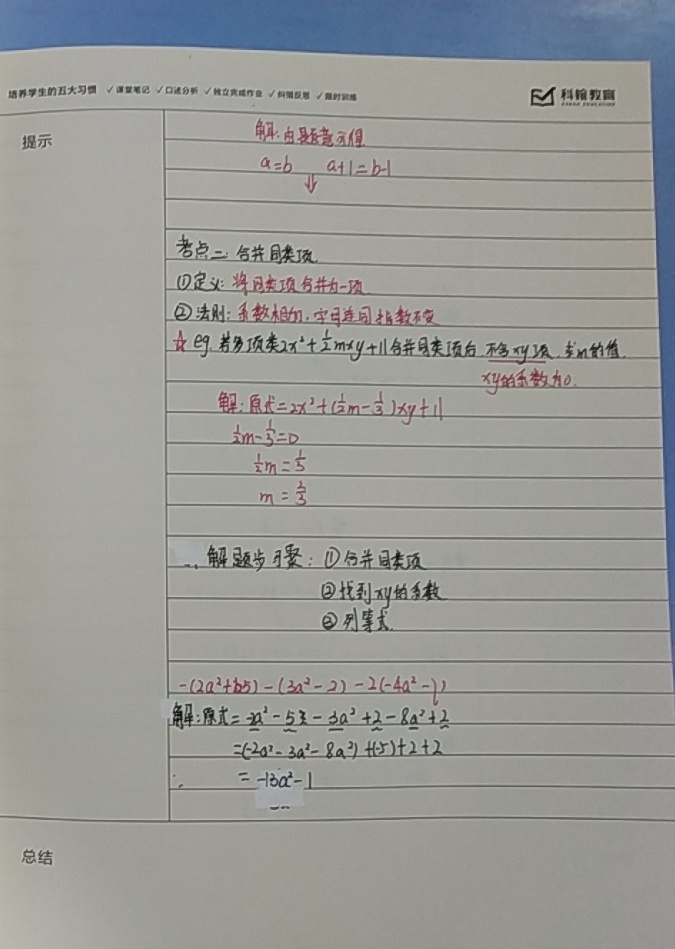 培养学生的五大习惯 ✓课堂笔记 ✓口述分析 ✓独立完成作业 ✓纠错反思 ✓限时训练
科翰教育
提示
解:由题意可得
a=b a+1=b-1
↓
考点二:合并同类项
①定义:将同类项合并为一项
②法则:系数相加,字母连同指数不变
☆eg.若多项类2x²+½mxy+11合并同类项后,不含xy项,求m的值.
xy的系数为0.
解:原式=2x²+(½m-⅓)xy+11
½m-⅓=0
½m=⅓
m=⅔
解题步骤:①合并同类项
②找到xy的系数
③列等式.
-(2a²+5)-(3a²-2)-2(-4a²-1)
解:原式=-2a²-5-3a²+2-8a²+2
=(-2a²-3a²-8a²)+(-5)+2+2
=-13a²-1
总结